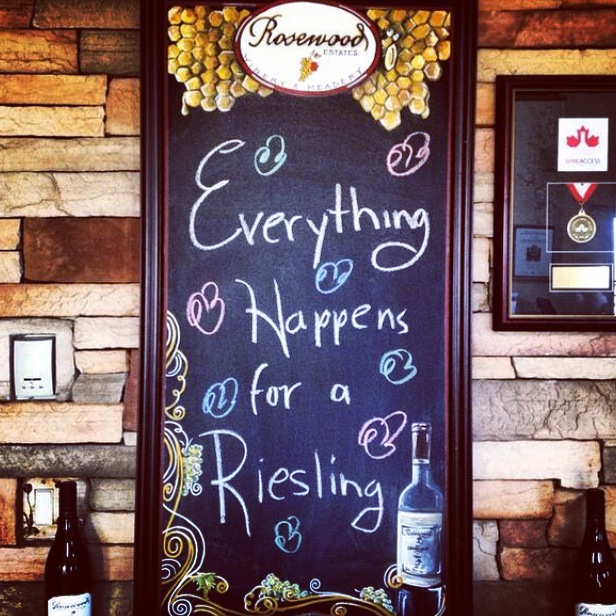 Rosewood
ESTATES
WINERY & MEADERY
Everything
Happens
for a
Riesling
Rosewood
Rosewood